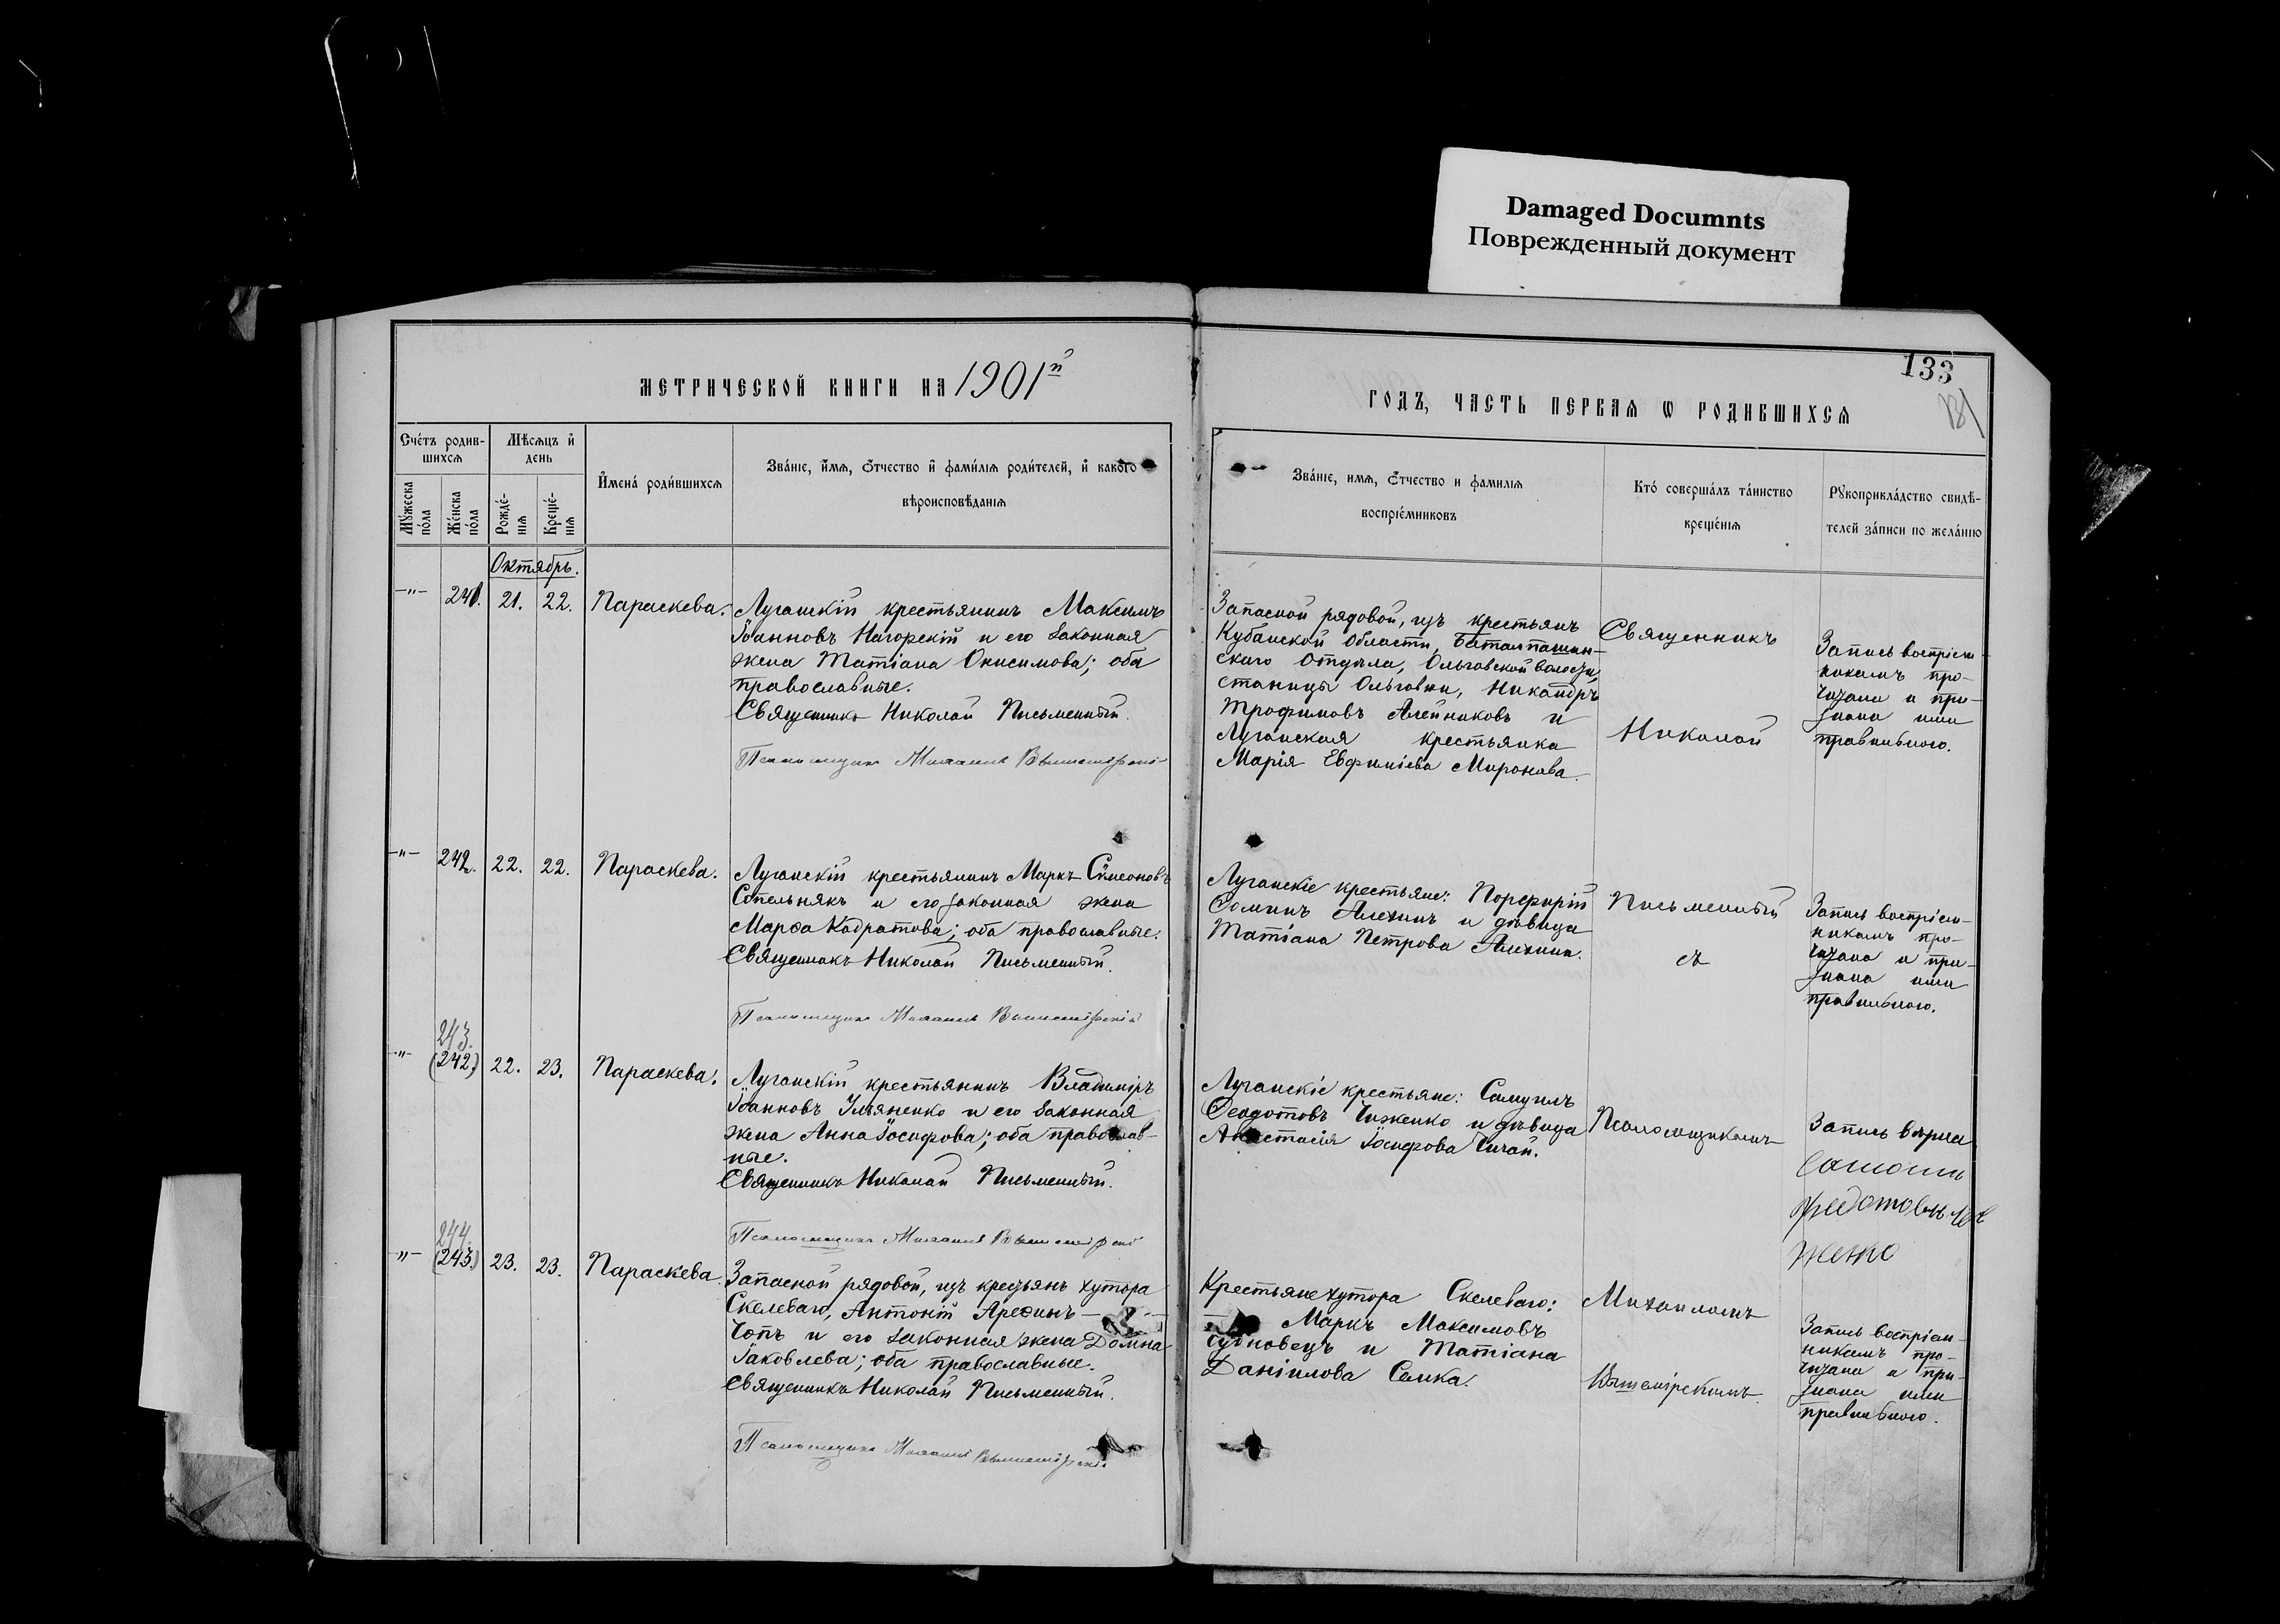 Damaged Documnts
Поврежденный документ
133
131
МЕТРИЧЕСКОЙ КНИГИ НА 1901й
ГОДЪ, ЧАСТЬ ПЕРВАЯ Ѡ РОДИВШИХСЯ
Счетъ родив-
шихся
Мужеска
пола
Женска
пола
Мѣсяцъ и
день
Рожде-
нія
Креще-
нія
Имена родившихся
Званіе, имя, отчество и фамилія родителей, и какого
вѣроисповѣданія
Званіе, имя, отчество и фамилія
воспріемниковъ
Кто совершалъ таинство
крещенія
Рукоприкладство свидѣ-
телей записи по желанію
Октябрь.
-"- 241. 21. 22. Параскева.
Луганскій крестьянинъ Максимъ
Іоанновъ Нагорскій и его законная
жена Татіана Онисимова; оба
православные.
Священникъ Николай Письменный.
Псаломщикъ Михаилъ Вышемірскій
Запасной рядовой, изъ крестьянъ
Кубанской области, Баталпашин-
скаго отдѣла, Ольговской волости,
станицы Ольговки, Никандръ
Трофимовъ Алейниковъ и
Луганская крестьянка
Марія Евфиміева Миронова.
Священникъ
Николай
Запись воспріем-
никамъ про-
читана и при-
знана ими
правильною.
-"- 242. 22. 22. Параскева.
Луганскій крестьянинъ Маркъ Сѵмеоновъ
Сопельнякъ и его законная жена
Марѳа Кодратова; оба православные.
Священникъ Николай Письменный.
Псаломщикъ Михаилъ Вышемірскій
Луганскіе крестьяне: Порфирій
Ѳоминъ Алехинъ и дѣвица
Татіана Петрова Алехина.
Письменный
съ
Запись воспріем-
никамъ про-
читана и при-
знана ими
правильною.
243.
-"- (242.) 22. 23. Параскева.
Луганскій крестьянинъ Владиміръ
Іоанновъ Ульяненко и его законная
жена Анна Іосифова; оба православ-
ные.
Священникъ Николай Письменный.
Псаломщикъ Михаилъ Вышемірскій
Луганскіе крестьяне: Самуилъ
Ѳеодотовъ Чиженко и дѣвица
Анастасія Іосифова Чичай.
Псаломщикомъ
Запись вѣрна
244.
-"- (243.) 23. 23. Параскева.
Запасной рядовой, изъ крестьянъ хутора
Скелеваго, Антоній Арефинъ
Чопъ и его законная жена Домна
Іаковлева; оба православные.
Священникъ Николай Письменный.
Псаломщикъ Михаилъ Вышемірскій
Крестьяне хутора Скелеваго:
Маркъ Максимовъ
и Татіана
Даніилова Семка.
Михаиломъ
Вышемірскимъ.
Запись воспріем-
никамъ про-
читана и при-
знана ими
правильною.